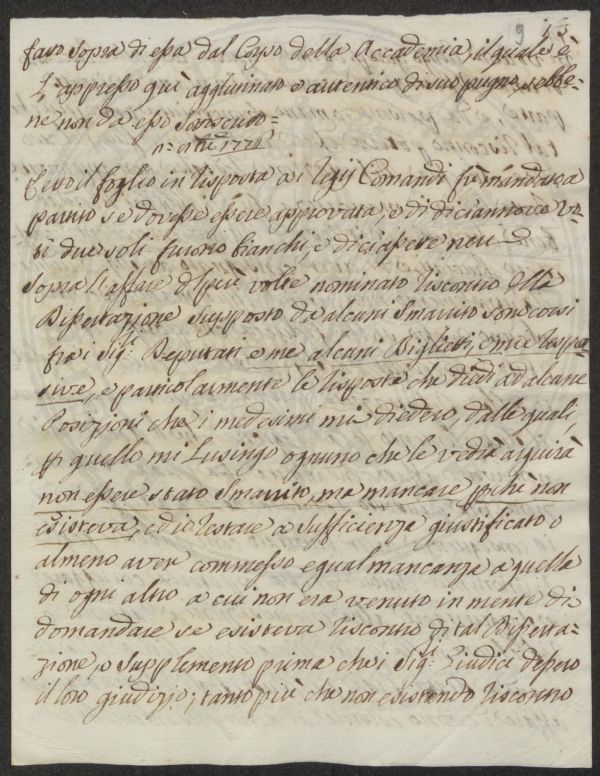 9 13
fatto sopra di essa dal Corpo della Accademia, il quale è
l'appresso quì aggiunnato o autentico di suo pugno, sebbe-
ne non da esso soscritto=
1771
Letto il foglio in risposta a i Regij Comandi fù mandato a
partito se dovesse essere approvata, e di diciannove vo-
ti due soli furono bianchi, e diciassette neri
Sopra l'affare del più volte nominato riscontro della
Dissertazione supposto da alcuni smarrito sono corsi
fra i Sig.ri Deputati e me alcuni Biglietti, e mie respon
sive, e particolarmente le risposte che diedi ad alcune
Posizioni che i medesimi mi diedero, dalle quali,
p quello mi lusingo ognuno che le vedrà arguirà
non essere stato smarrito, ma mancare pchè non
esisteva, ed io restare a sufficienza giustificato o
almeno aver commesso egual mancanza a quella
di ogni altro a cui non era venuto in mente di
domandare se esisteva riscontro di tal Disserta-
zione, o supplemento prima che i Sig.ri Giudici dessero
il loro giudizio; tanto più che non esistendo riscontro